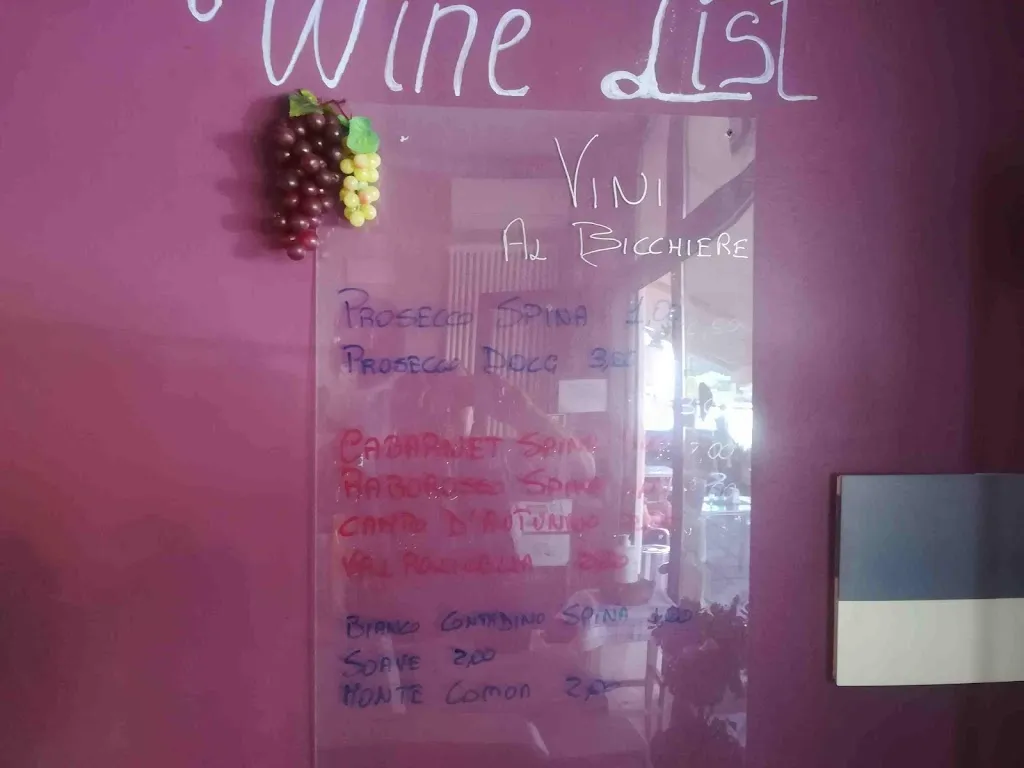 Wine List
VINI
AL BICCHIERE
PROSECCO SPINA
PROSECCO DOCG
CABARNET SPINA
RABOROSSO SPINA
CAMPO D'AUTUNNO
BIANCO CONTADINO SPINA 1,00
SOAVE 2,00
MONTE COMON 2,00